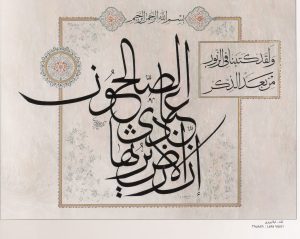 بسم الله الرحمن الرحيم
ولقد كتبنا في الزبور
من بعد الذكر
أن الأرض يرثها
عبادي
الصالحون